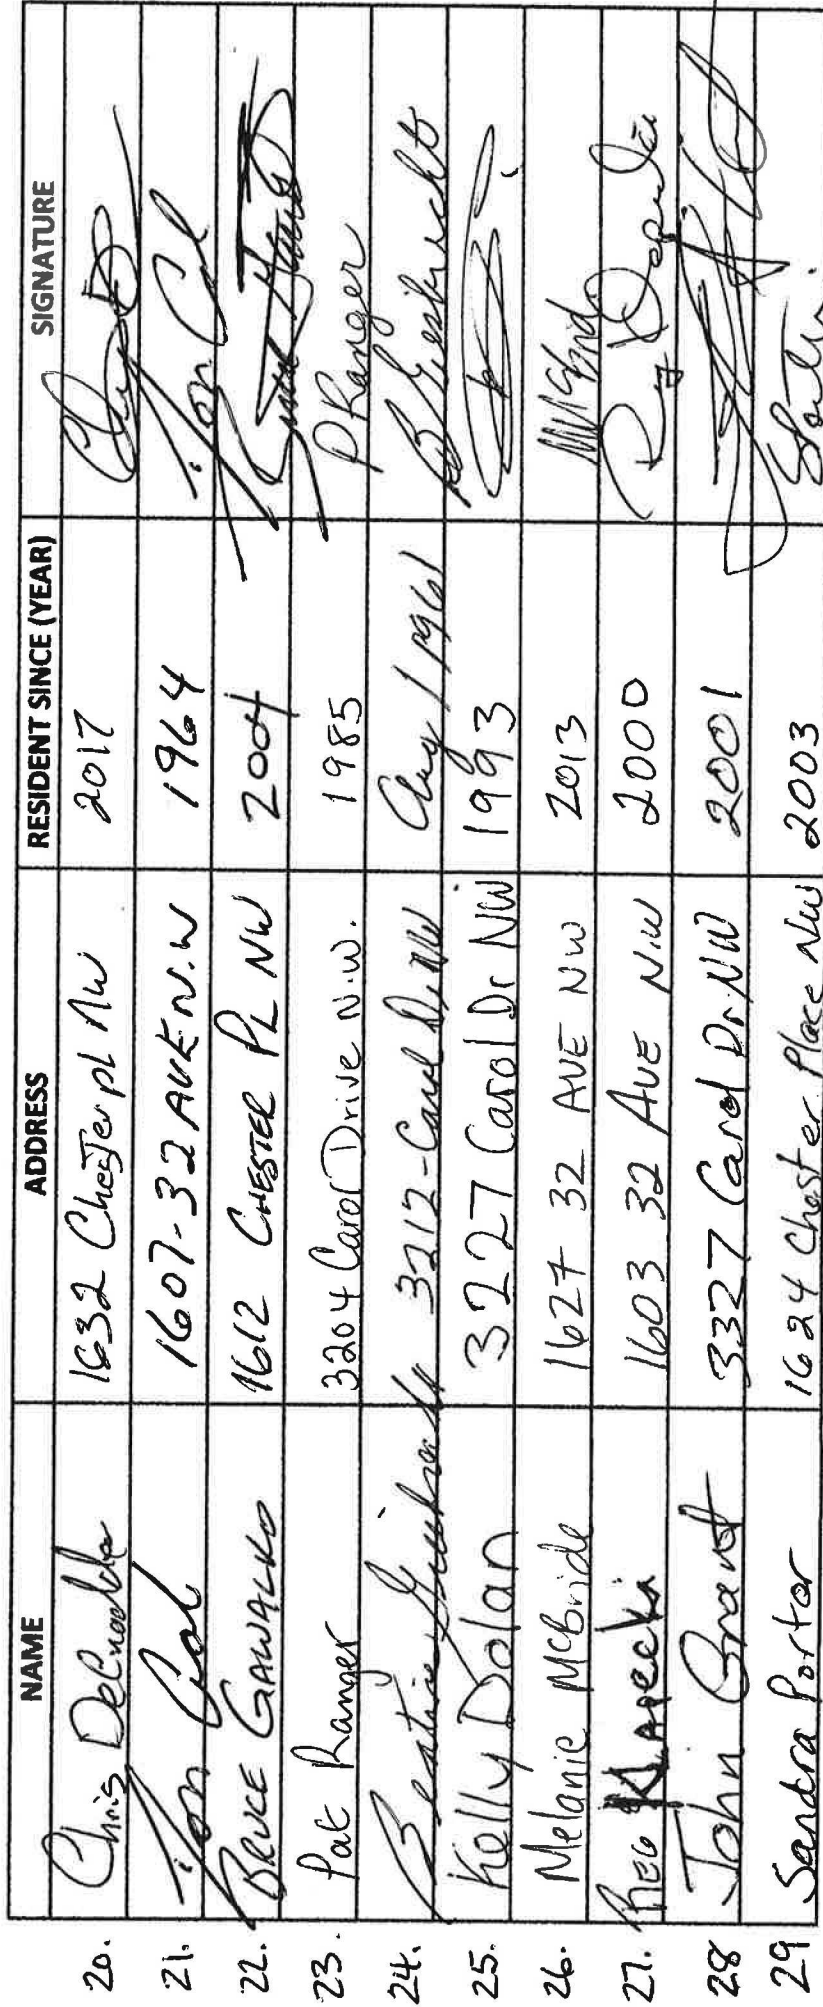 NAME ADDRESS RESIDENT SINCE (YEAR) SIGNATURE
20. Chris 1632 Chester pl NW 2017
21. 1607-32 AVE N.W 1964
22. BRUCE GAWALKO 1612 CHESTER PL NW 2004
23. Pat Ranger 3204 Carol Drive N.W. 1985 P Ranger
24. 3212-Carol Dr NW Aug 1 1961
25. Kelly Dolan 3227 Carol Dr NW 1993
26. Melanie McBride 1627 32 AVE NW 2013
27. REG KAPECKI 1603 32 AVE N.W 2000
28 John Grant 3327 Carol Dr. NW 2001
29 Sandra Porter 1624 Chester Place NW 2003